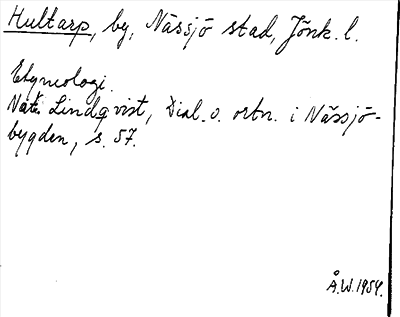 Hultarp, by, Nässjö stad, Jönk. l.
Etymologi.
Nat. Lindqvist, Dial. o. ortn. i Nässjö-
bygden, s. 57.
Å.W. 1954.